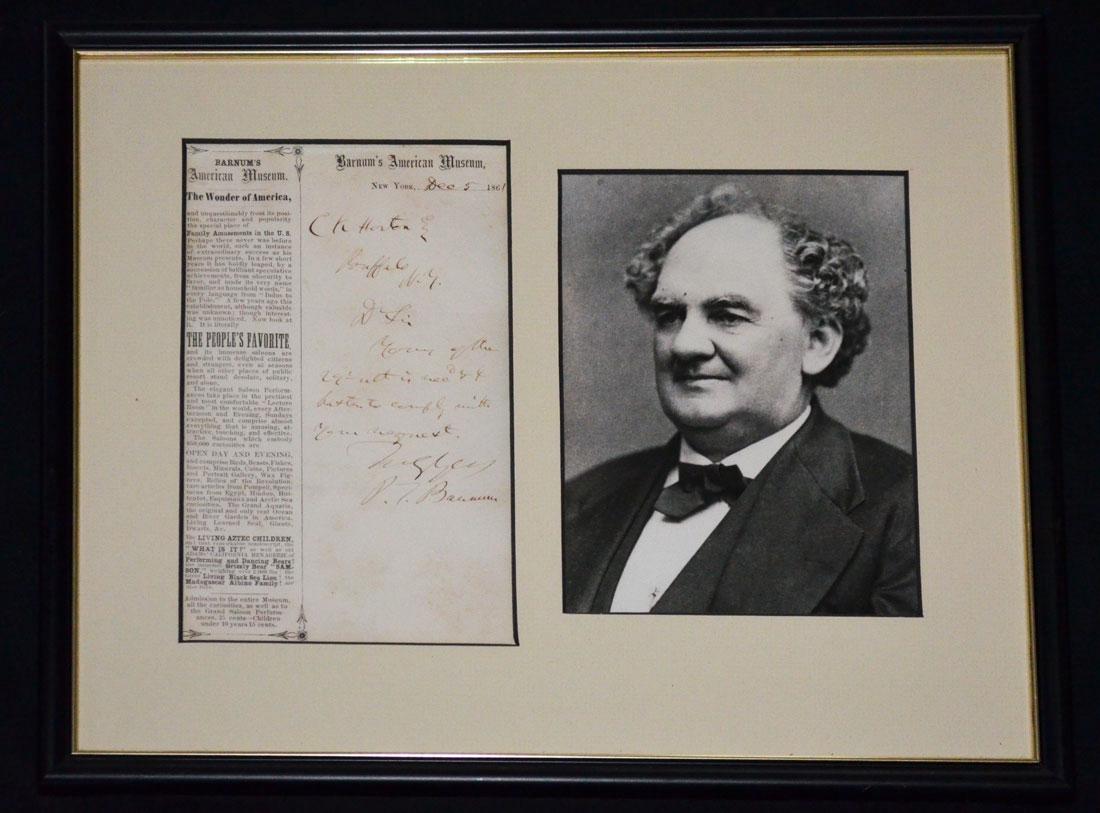 BARNUM'S
American Museum.
The Wonder of America,
and unquestionably from its posi-
tion, character and popularity
the special place of
Family Amusements in the U. S.
Perhaps there never was before
in the world, such an instance
of extraordinary success as his
Museum presents. In a few short
years it has boldly leaped, by a
succession of brilliant speculative
achievements, from obscurity to
favor, and made its very name
"familiar as household words," in
every language from "Indus to
the Pole." A few years ago this
establishment, although valuable
was unknown; though interest-
ing was unnoticed. Now look at
it. It is literally
THE PEOPLE'S FAVORITE,
and its immense saloons are
crowded with delighted citizens
and strangers, even at seasons
when all other places of public
resort stand desolate, solitary,
and alone.
The elegant Saloon Perform-
ances take place in the prettiest
and most comfortable "Lecture
Room" in the world, every After-
ternoon and Evening, Sundays
excepted, and comprise almost
everything that is amusing, at-
tractive, touching, and effective.
The Saloons which embody
850,000 curiosities are
OPEN DAY AND EVENING,
and comprise Birds, Beasts, Fishes,
Insects, Minerals, Coins, Pictures
and Portrait Gallery, Wax Fig-
ures, Relics of the Revolution,
rare articles from Pompeii, Speci-
mens from Egypt, Hindoo, Hot-
tentot, Esquimaux and Arctic Sea
curiosities. The Grand Aquaria,
the original and only real Ocean
and River Garden in America,
Living Learned Seal, Giants,
Dwarfs, &c.
the LIVING AZTEC CHILDREN,
"WHAT IS IT?" as well as old
ADAMS' CALIFORNIA MENAGERIE of
Performing and Dancing Bears!
Grizzly Bear "SAM-
SON," weighing over 2,000 lbs; the
Living Black Sea Lion! the
Madagascar Albino Family! and
Admission to the entire Museum,
all the curiosities, as well as to
the Grand Saloon Perform-
ances, 25 cents—Children
under 10 years 15 cents.
Barnum's American Museum,
NEW YORK, Dec 5 1861
C K Horton
Buffalo
N.Y.
Dr Sir
Yours of the
29 ult is recd & I
hasten to comply with
Your request.
P. T. Barnum